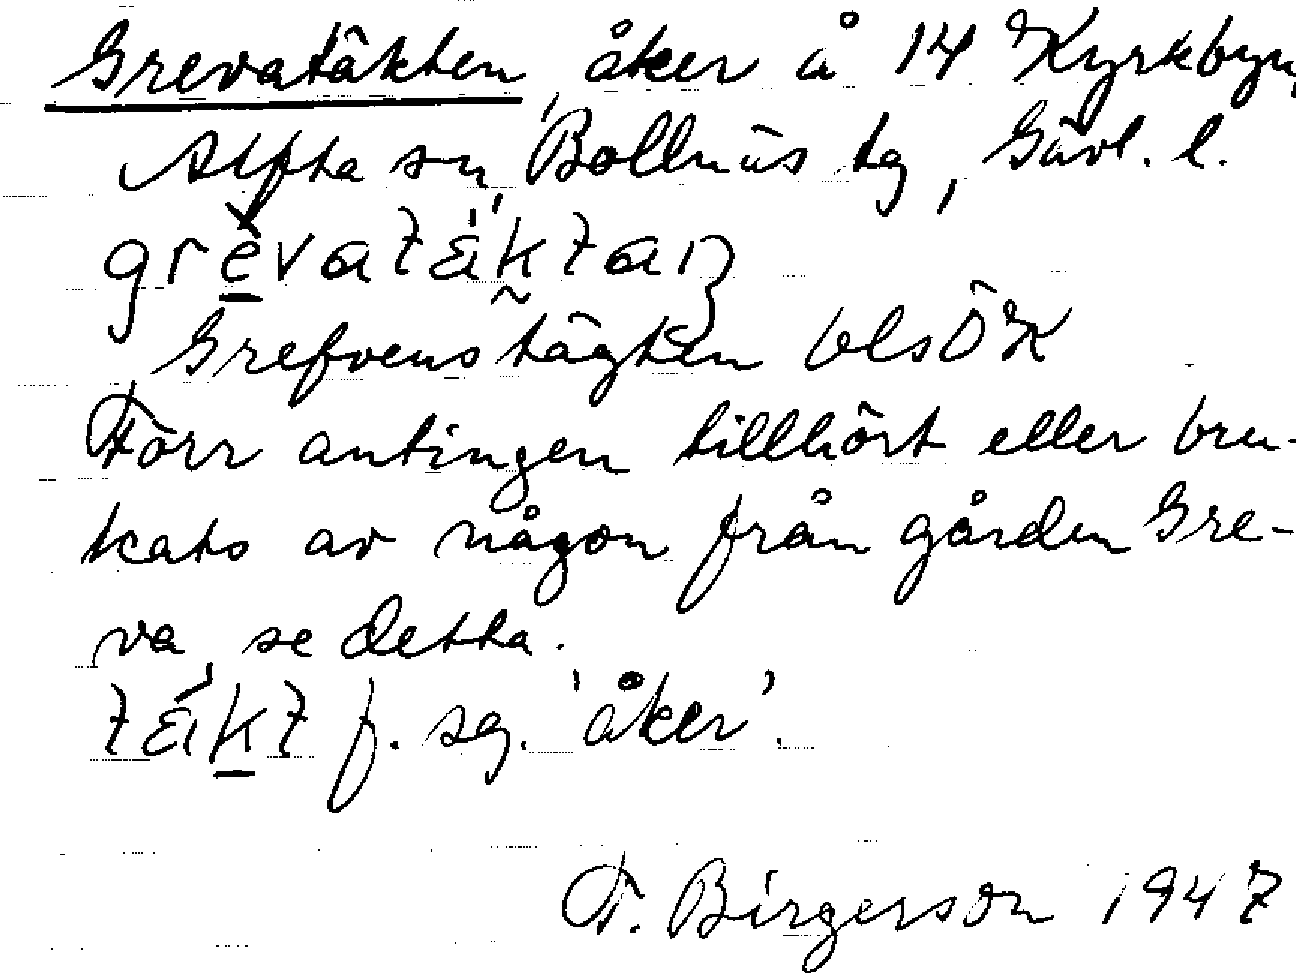 Grevatäkten, åker å 14 Kyrkbyn,
Alfta sn, Bollnäs tg, Gävl. l.
Grefvenstägten blsÖK
Förr antingen tillhört eller bru-
kats av någon från gården Gre-
va, se detta.
f. sg. 'åker'.
F. Birgerson 1947